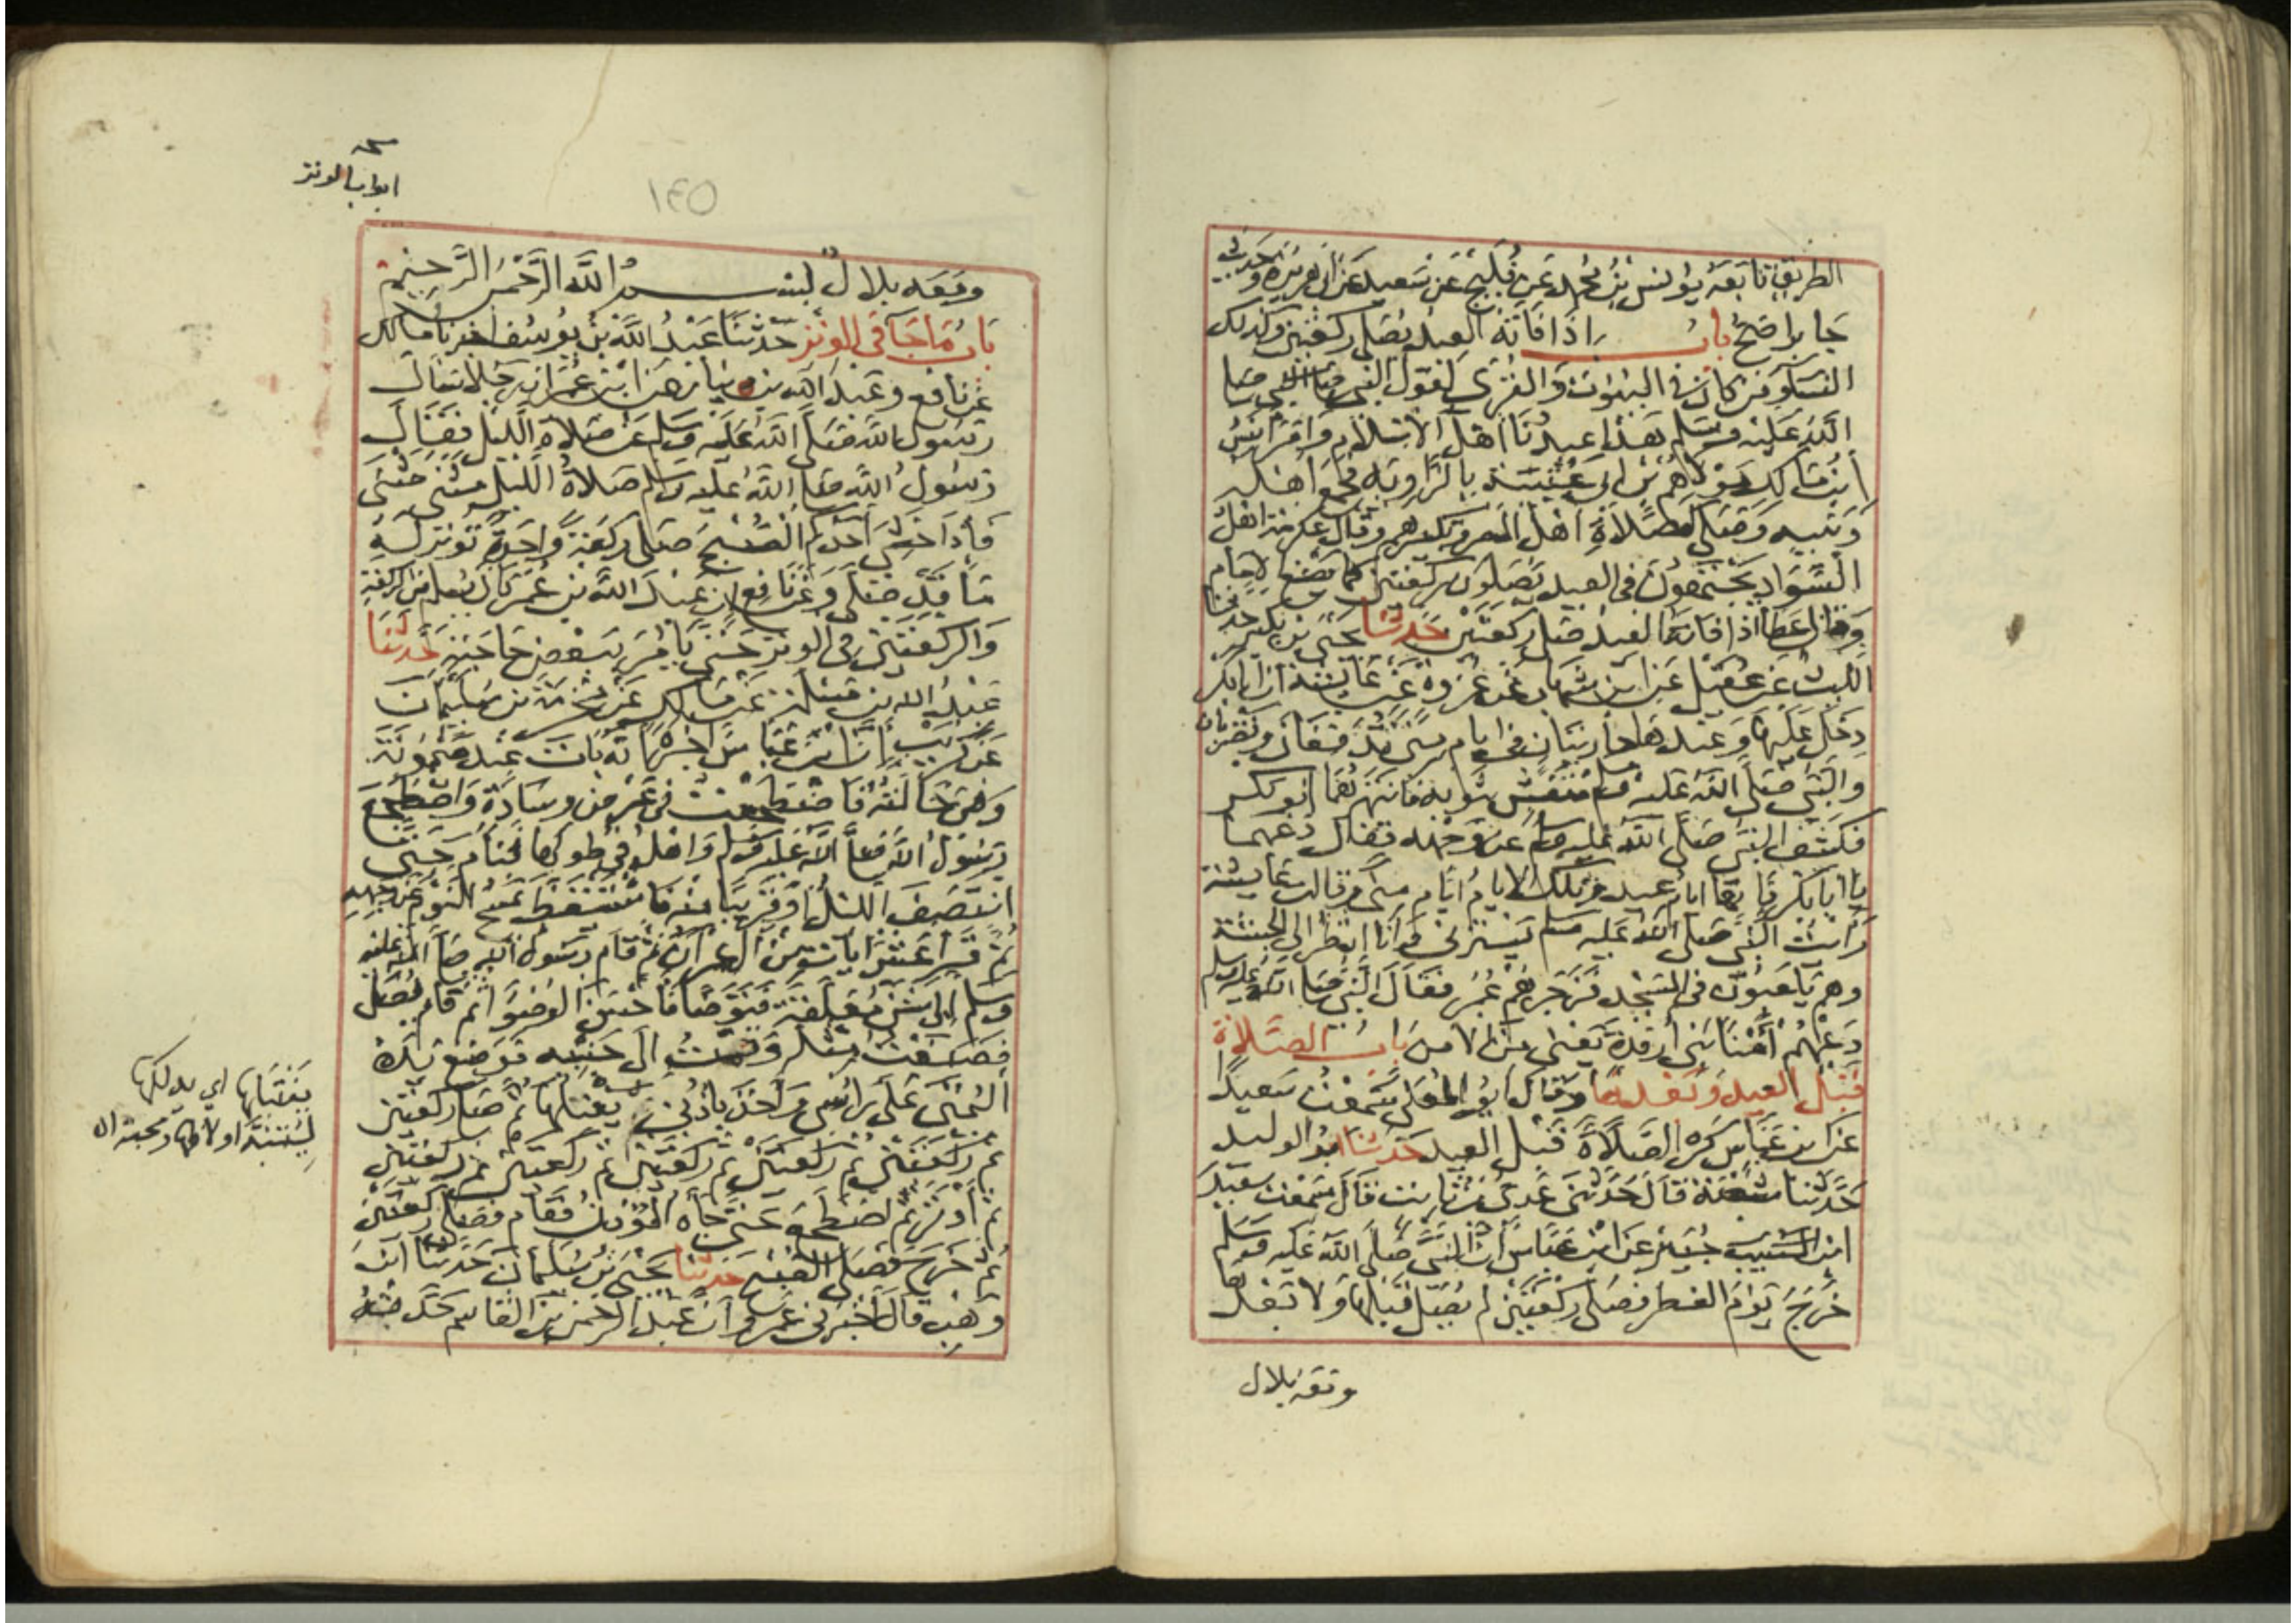 الطريق تابعه يونس بن محمد عن فليح عن سعيد عن ابي هريرة وحديث
جابر اصح باب اذا فاته العيد يصلي ركعتين وكذلك
النساء ومن كان في البيوت والقرى لقول النبي صلى
الله عليه وسلم هذا عيدنا اهل الاسلام وامر انس
ابن مالك مولاهم ابن ابي عتبة بالزاوية فجمع اهله
وبنيه وصلى كصلاة اهل المصر وتكبيرهم وقال عكرمة اهل
السواد يجتمعون في العيد يصلون ركعتين كما يصنع الامام
وقال عطا اذا فاته العيد صلى ركعتين حدثنا يحيى بن بكير حدثنا
الليث عن عقيل عن ابن شهاب عن عروة عن عايشة ان ابا بكر
دخل عليها وعندها جاريتان في ايام منى تدففان وتضربان
والنبي صلى الله عليه وسلم متغش بثوبه فانتهرهما ابو بكر
فكشف النبي صلى الله عليه وسلم عن وجهه فقال دعهما
يا ابا بكر فانها ايام عيد وتلك الايام ايام منى وقالت عايشة
رايت النبي صلى الله عليه وسلم يسترني وانا انظر الى الحبشة
وهم يلعبون في المسجد فزجرهم عمر فقال النبي صلى الله عليه وسلم
دعهم امنا بني ارفدة يعني من الامن باب الصلاة
قبل العيد وبعدها وقال ابو المعلى سمعت سعيدا
عن ابن عباس كره الصلاة قبل العيد حدثنا ابو الوليد
حدثنا شعبة قال حدثني عدي بن ثابت قال سمعت سعيد
ابن المسيب جبير عن ابن عباس ان النبي صلى الله عليه وسلم
خرج يوم الفطر فصلى ركعتين لم يصل قبلها ولا بعدها
ومعه بلال
ابواب الوتر
١٤٥
ومعه بلال بسم الله الرحمن الرحيم
باب ما جا في الوتر حدثنا عبد الله بن يوسف اخبرنا مالك
عن نافع وعبد الله بن دينار عن ابن عمر ان رجلا سال
رسول الله صلى الله عليه وسلم عن صلاة الليل فقال
رسول الله صلى الله عليه وسلم صلاة الليل مثنى مثنى
فاذا خشي احدكم الصبح صلى ركعة واحدة توتر له
ما قد صلى وعن نافع ان عبد الله بن عمر كان يسلم بين الركعة
والركعتين في الوتر حتى يامر ببعض حاجته حدثنا
عبد الله بن مسلمة عن مالك عن مخرمة بن سليمان
عن كريب ان ابن عباس اخبره انه بات عند ميمونة
وهي خالته فاضطجعت في عرض وسادة واضطجع
رسول الله صلى الله عليه وسلم واهله في طولها فنام حتى
انتصف الليل او قريبا منه فاستيقظ يمسح النوم عن وجهه
ثم قرا عشر ايات من ال عمران ثم قام رسول الله صلى الله عليه
وسلم الى شن معلقة فتوضا فاحسن الوضوء ثم قام يصلي
فصنعت مثله وقمت الى جنبه فوضع يده
اليمنى على راسي واخذ باذني يفتلها ثم صلى ركعتين
ثم ركعتين ثم ركعتين ثم ركعتين ثم ركعتين ثم ركعتين
ثم اوتر ثم اضطجع حتى جاه المؤذن فقام فصلى ركعتين
ثم خرج فصلى الصبح حدثنا يحيى بن سليمان حدثنا ابن
وهب قال اخبرني عمرو ان عبد الرحمن بن القاسم حدثه
يفتلها اي يدلكها
لينتبه او لاظهار محبته اه